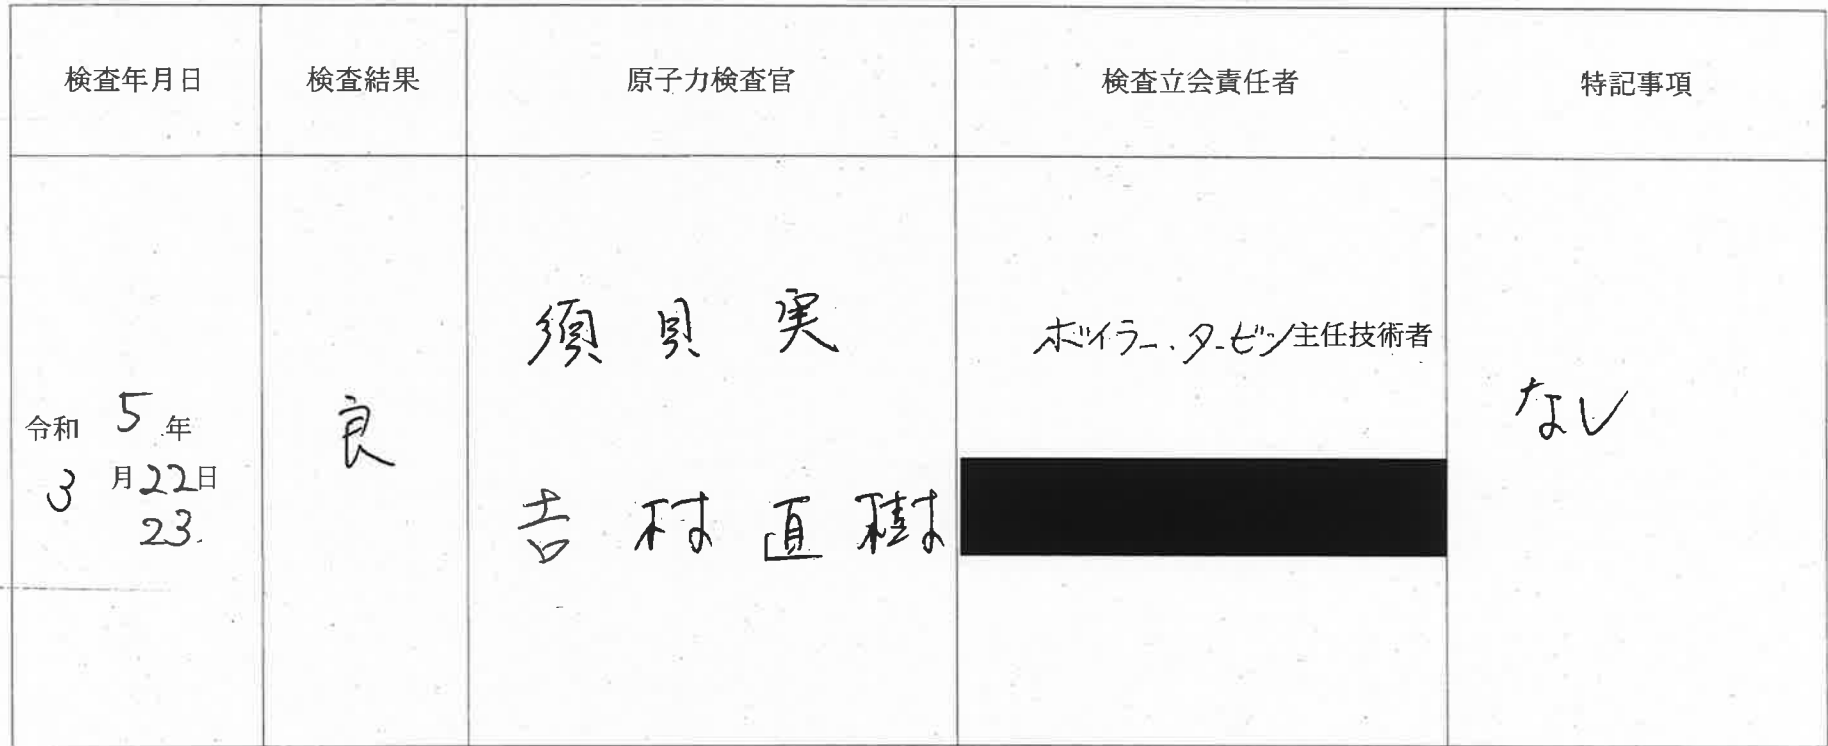 検査年月日
検査結果
原子力検査官
検査立会責任者
特記事項
令和 5 年
3 月22日
23.
良
須貝 実
吉村直樹
ボイラー・タービン主任技術者
なし